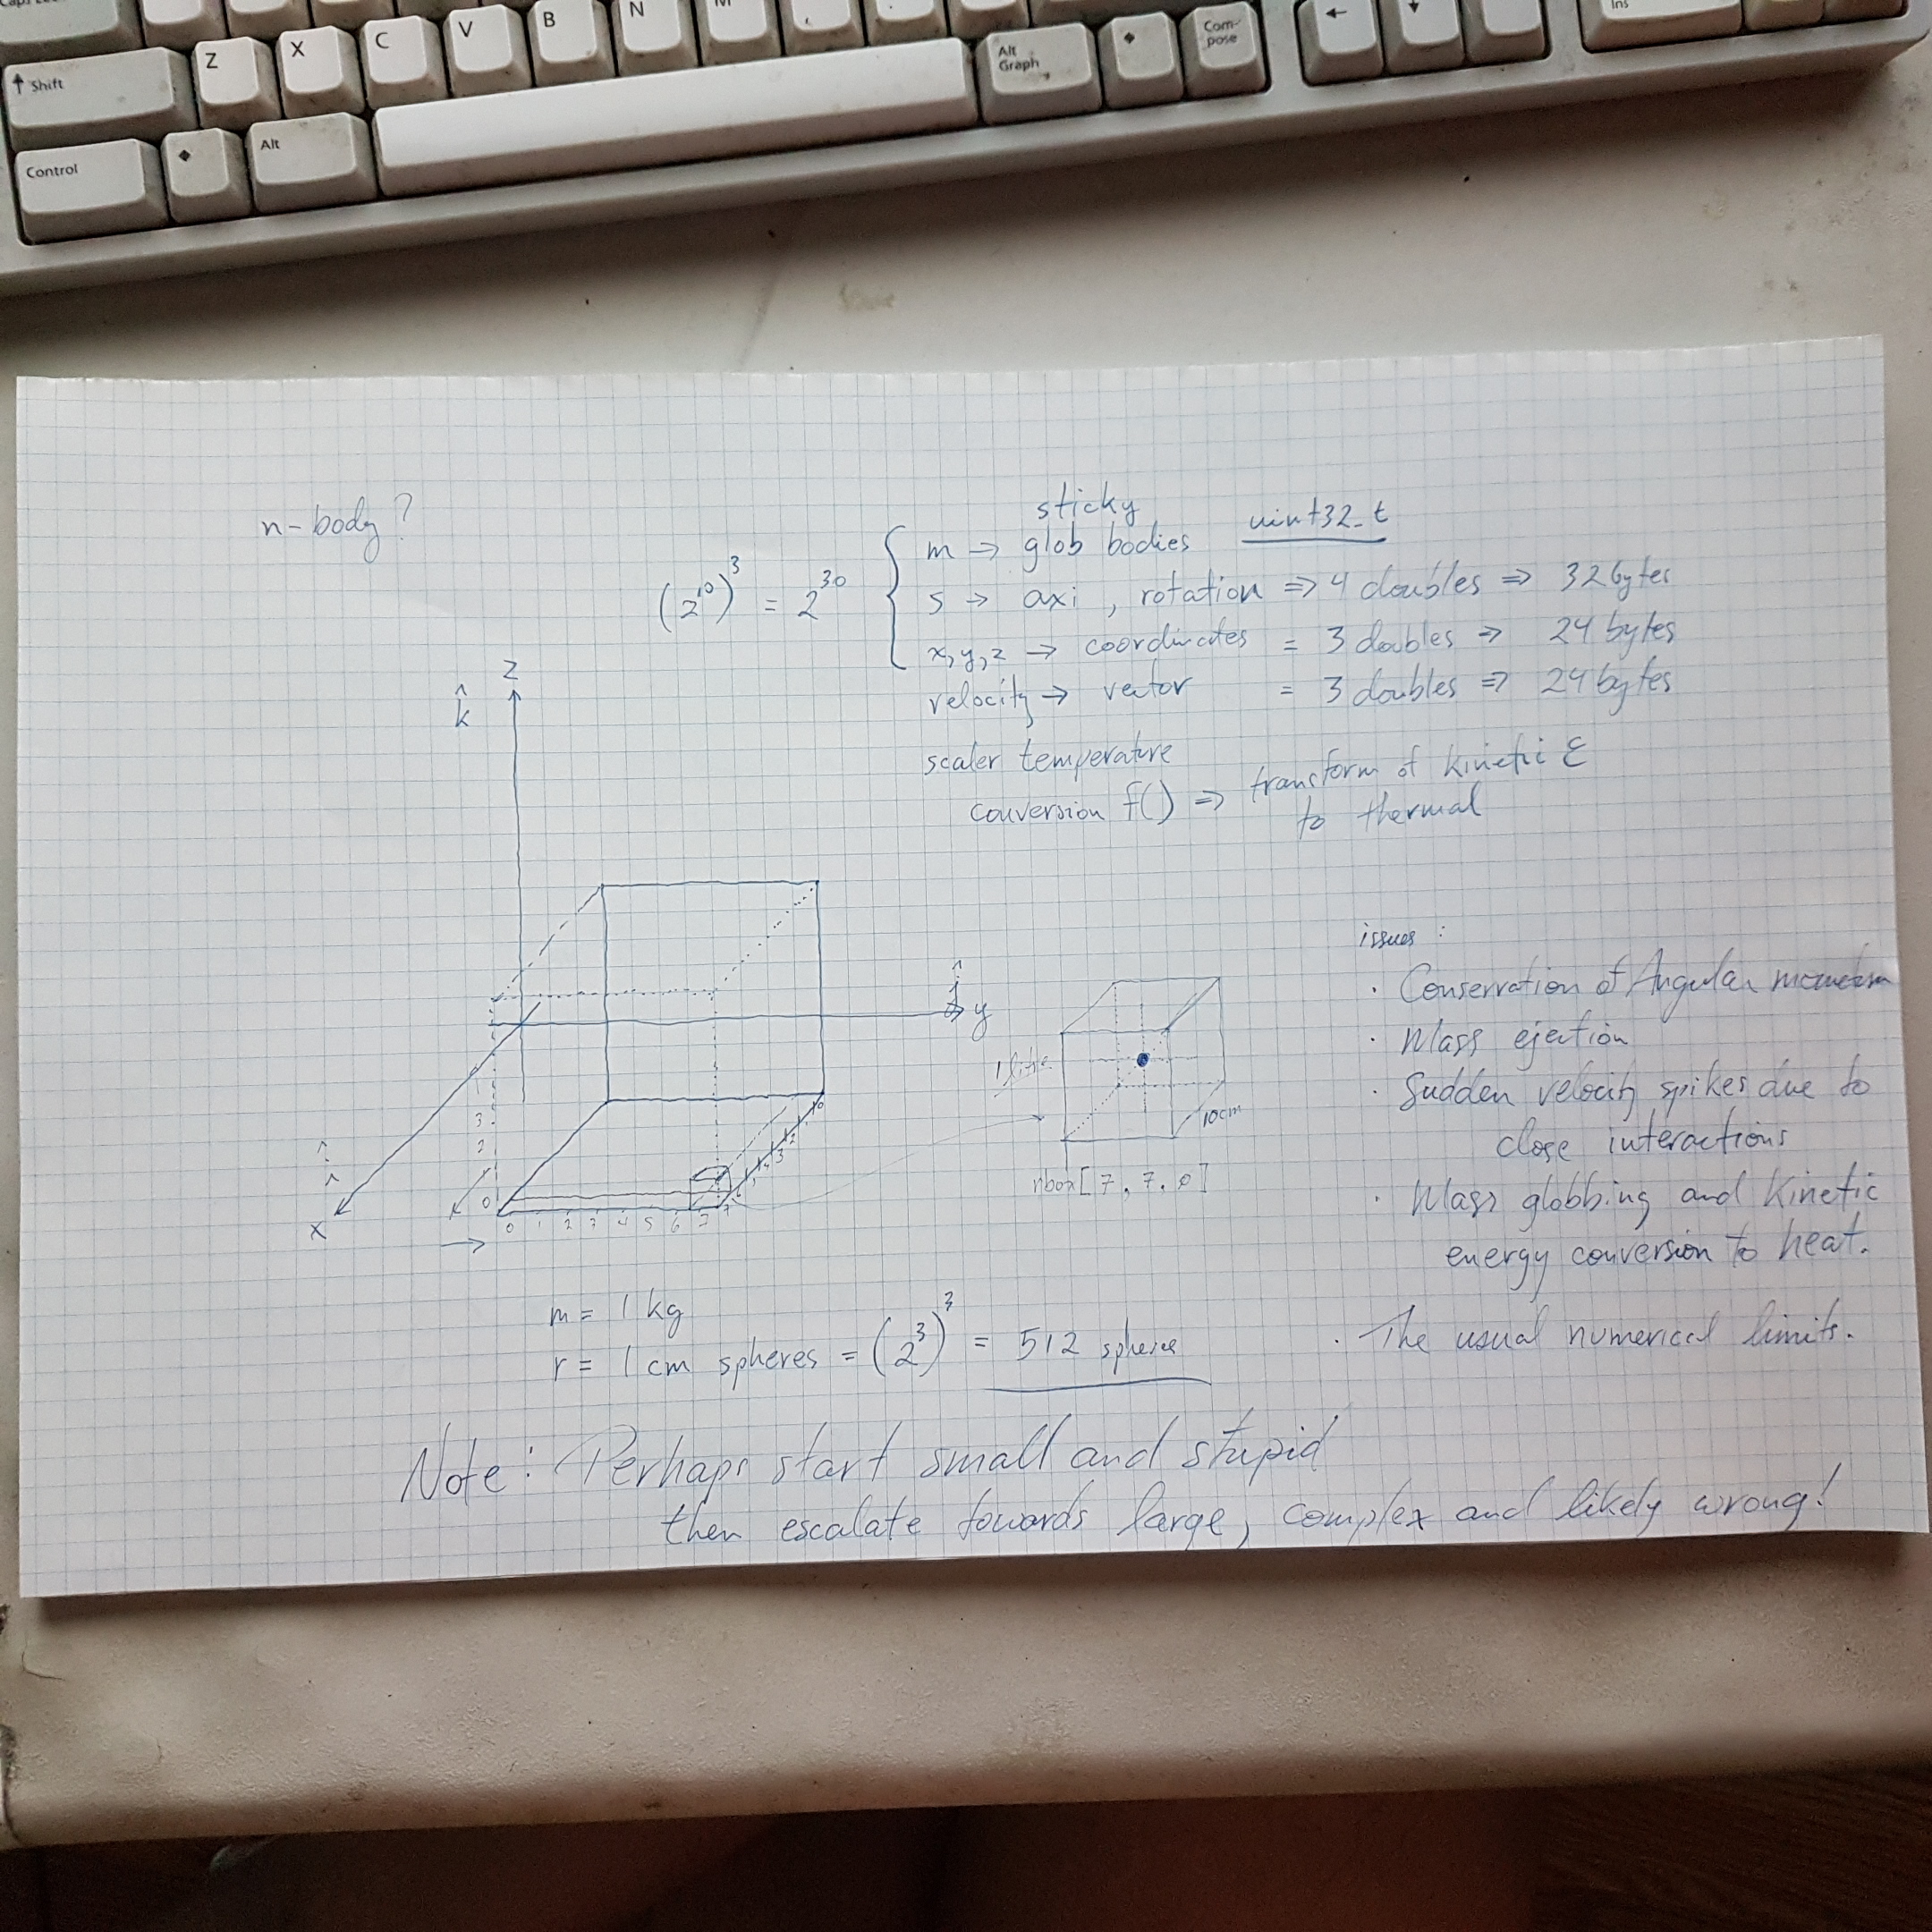 Z X C V B N M
↑ Shift
Alt Graph
◆
Com-
pose
←
Ins
Control
◆
Alt
n-body?
sticky
m → glob bodies uint32_t
(2^10)^3 = 2^30
s → axi, rotation ⇒ 4 doubles ⇒ 32 bytes
x, y, z → coordinates = 3 doubles ⇒ 24 bytes
velocity → vector = 3 doubles ⇒ 24 bytes
z
k̂
scaler temperature
conversion f() ⇒ transform of kinetic E
to thermal
issues :
· Conservation of Angular momentum
· Mass ejection
· Sudden velocity spikes due to
close interactions
· Mass globbing and kinetic
energy conversion to heat.
· The usual numerical limits.
y
1 litre
10cm
nbox[7, 7, 0]
x
3
2
0
0 1 2 3 4 5 6 7
m = 1 kg
r = 1 cm spheres = (2^3)^3 = 512 spheres
Note: Perhaps start small and stupid
then escalate towards large, complex and likely wrong!